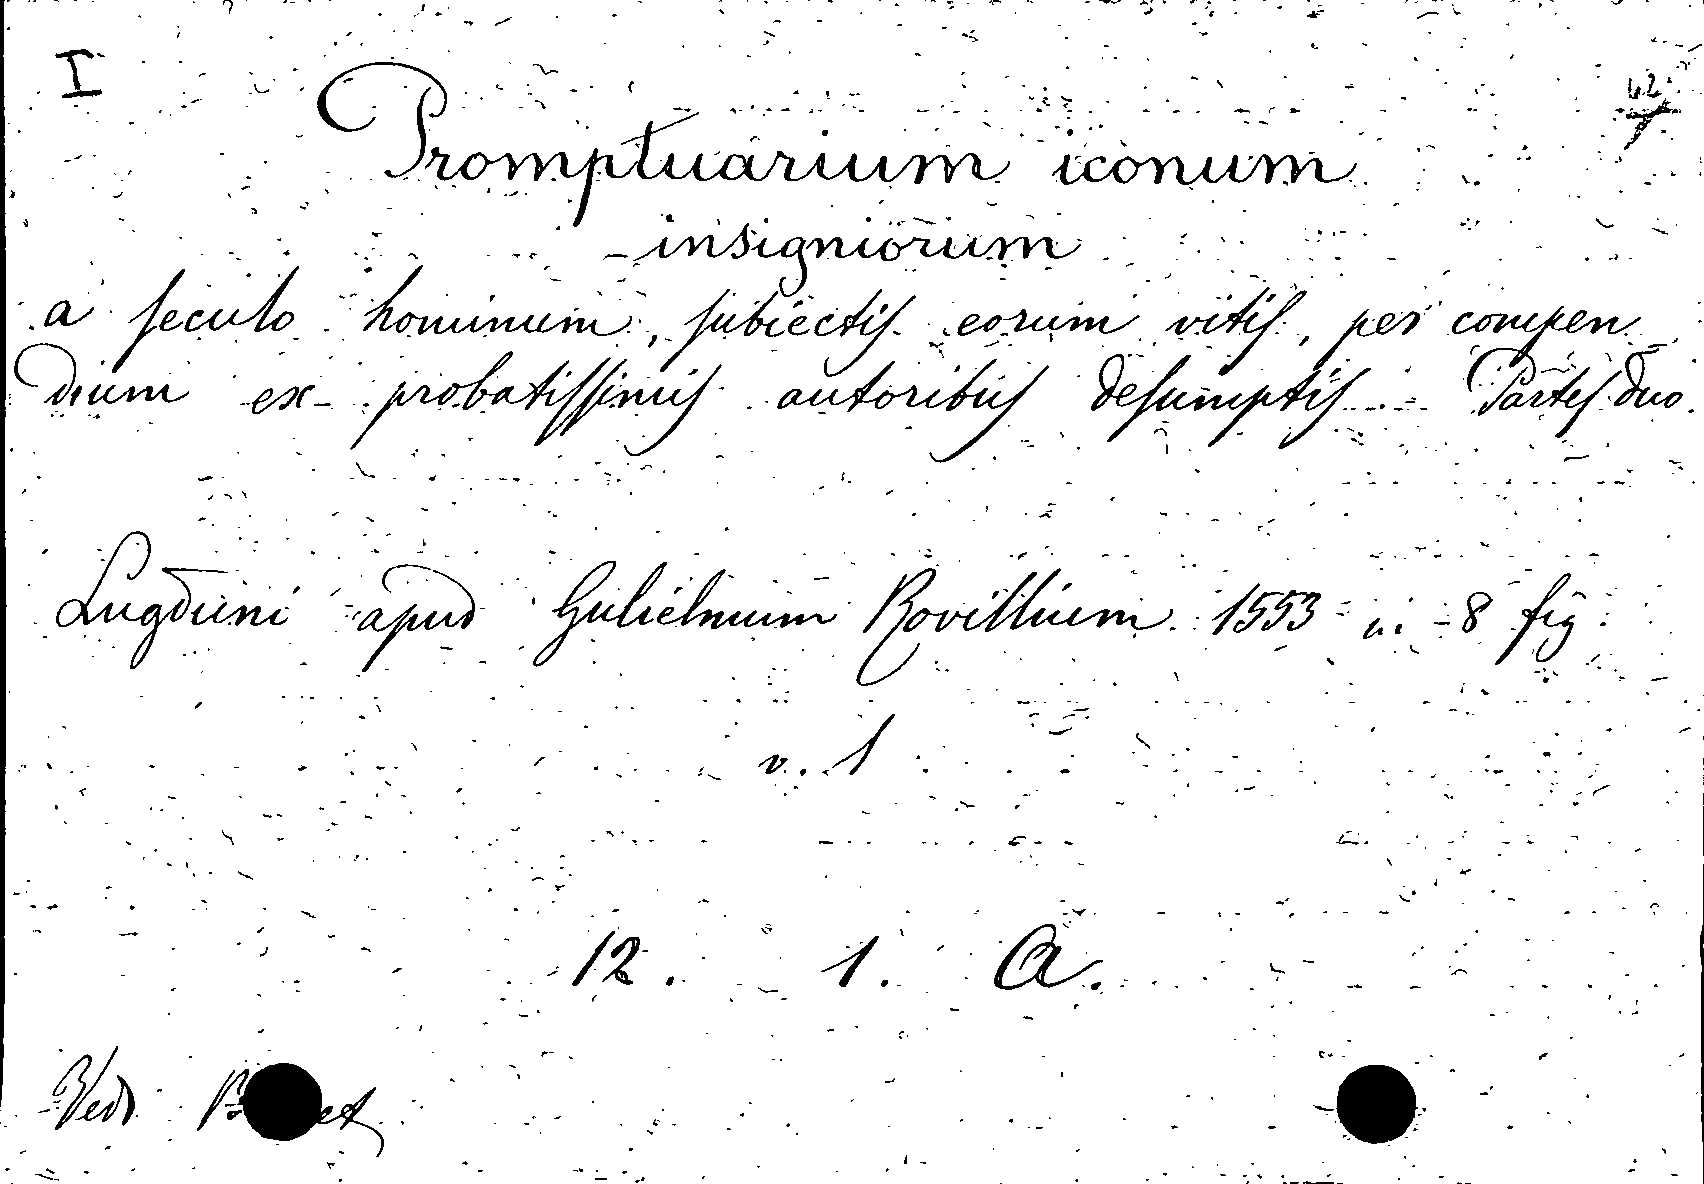 I
Promptuarium iconum
insigniorum
a seculo hominum, subiectis eorum vitis, per compen
dium ex probatissimis autoribus desumptis. Partes duo.
Lugduni apud Gulielmum Rovillium 1553 in -8 fig.
v. 1
12. 1. A.
Ved.